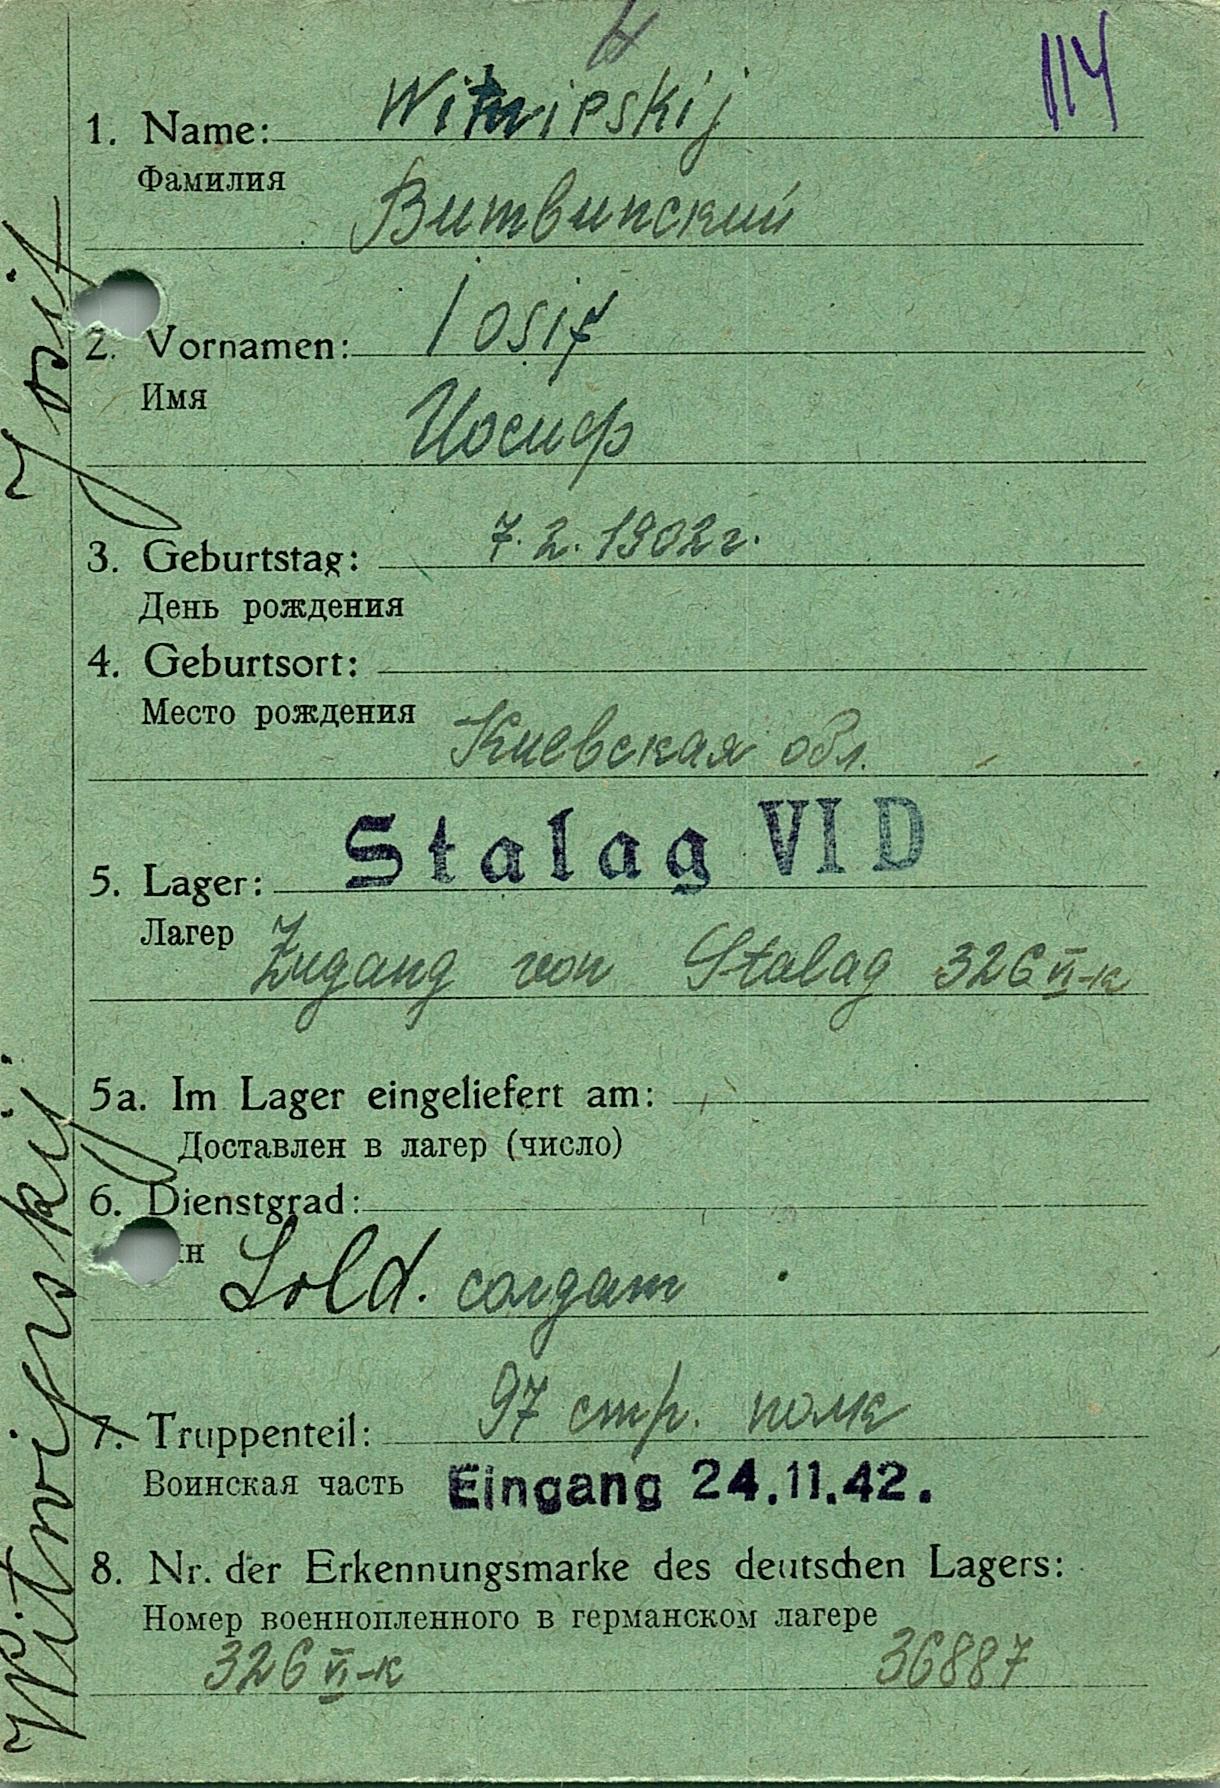 114
1. Name: Witwipskij
Фамилия
Витвипский
2. Vornamen: Iosif
Имя
Иосиф
3. Geburtstag: 7.2.1902г.
День рождения
4. Geburtsort:
Место рождения
Киевская обл.
5. Lager: Stalag VI D
Лагер
Zugang von Stalag 326 VI-K
5a. Im Lager eingeliefert am:
Доставлен в лагер (число)
6. Dienstgrad:
ин
Sold. солдат
7. Truppenteil: 97 стр. полк
Воинская часть Eingang 24.11.42.
8. Nr. der Erkennungsmarke des deutschen Lagers:
Номер военнопленного в германском лагере
326 VI-K 36887
Witwipskij Josif